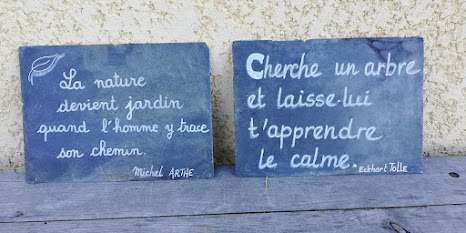 La nature
devient jardin
quand l'homme y trace
son chemin.
Michel ARTHE
Cherche un arbre
et laisse-lui
t'apprendre
le calme.
Eckhart Tolle